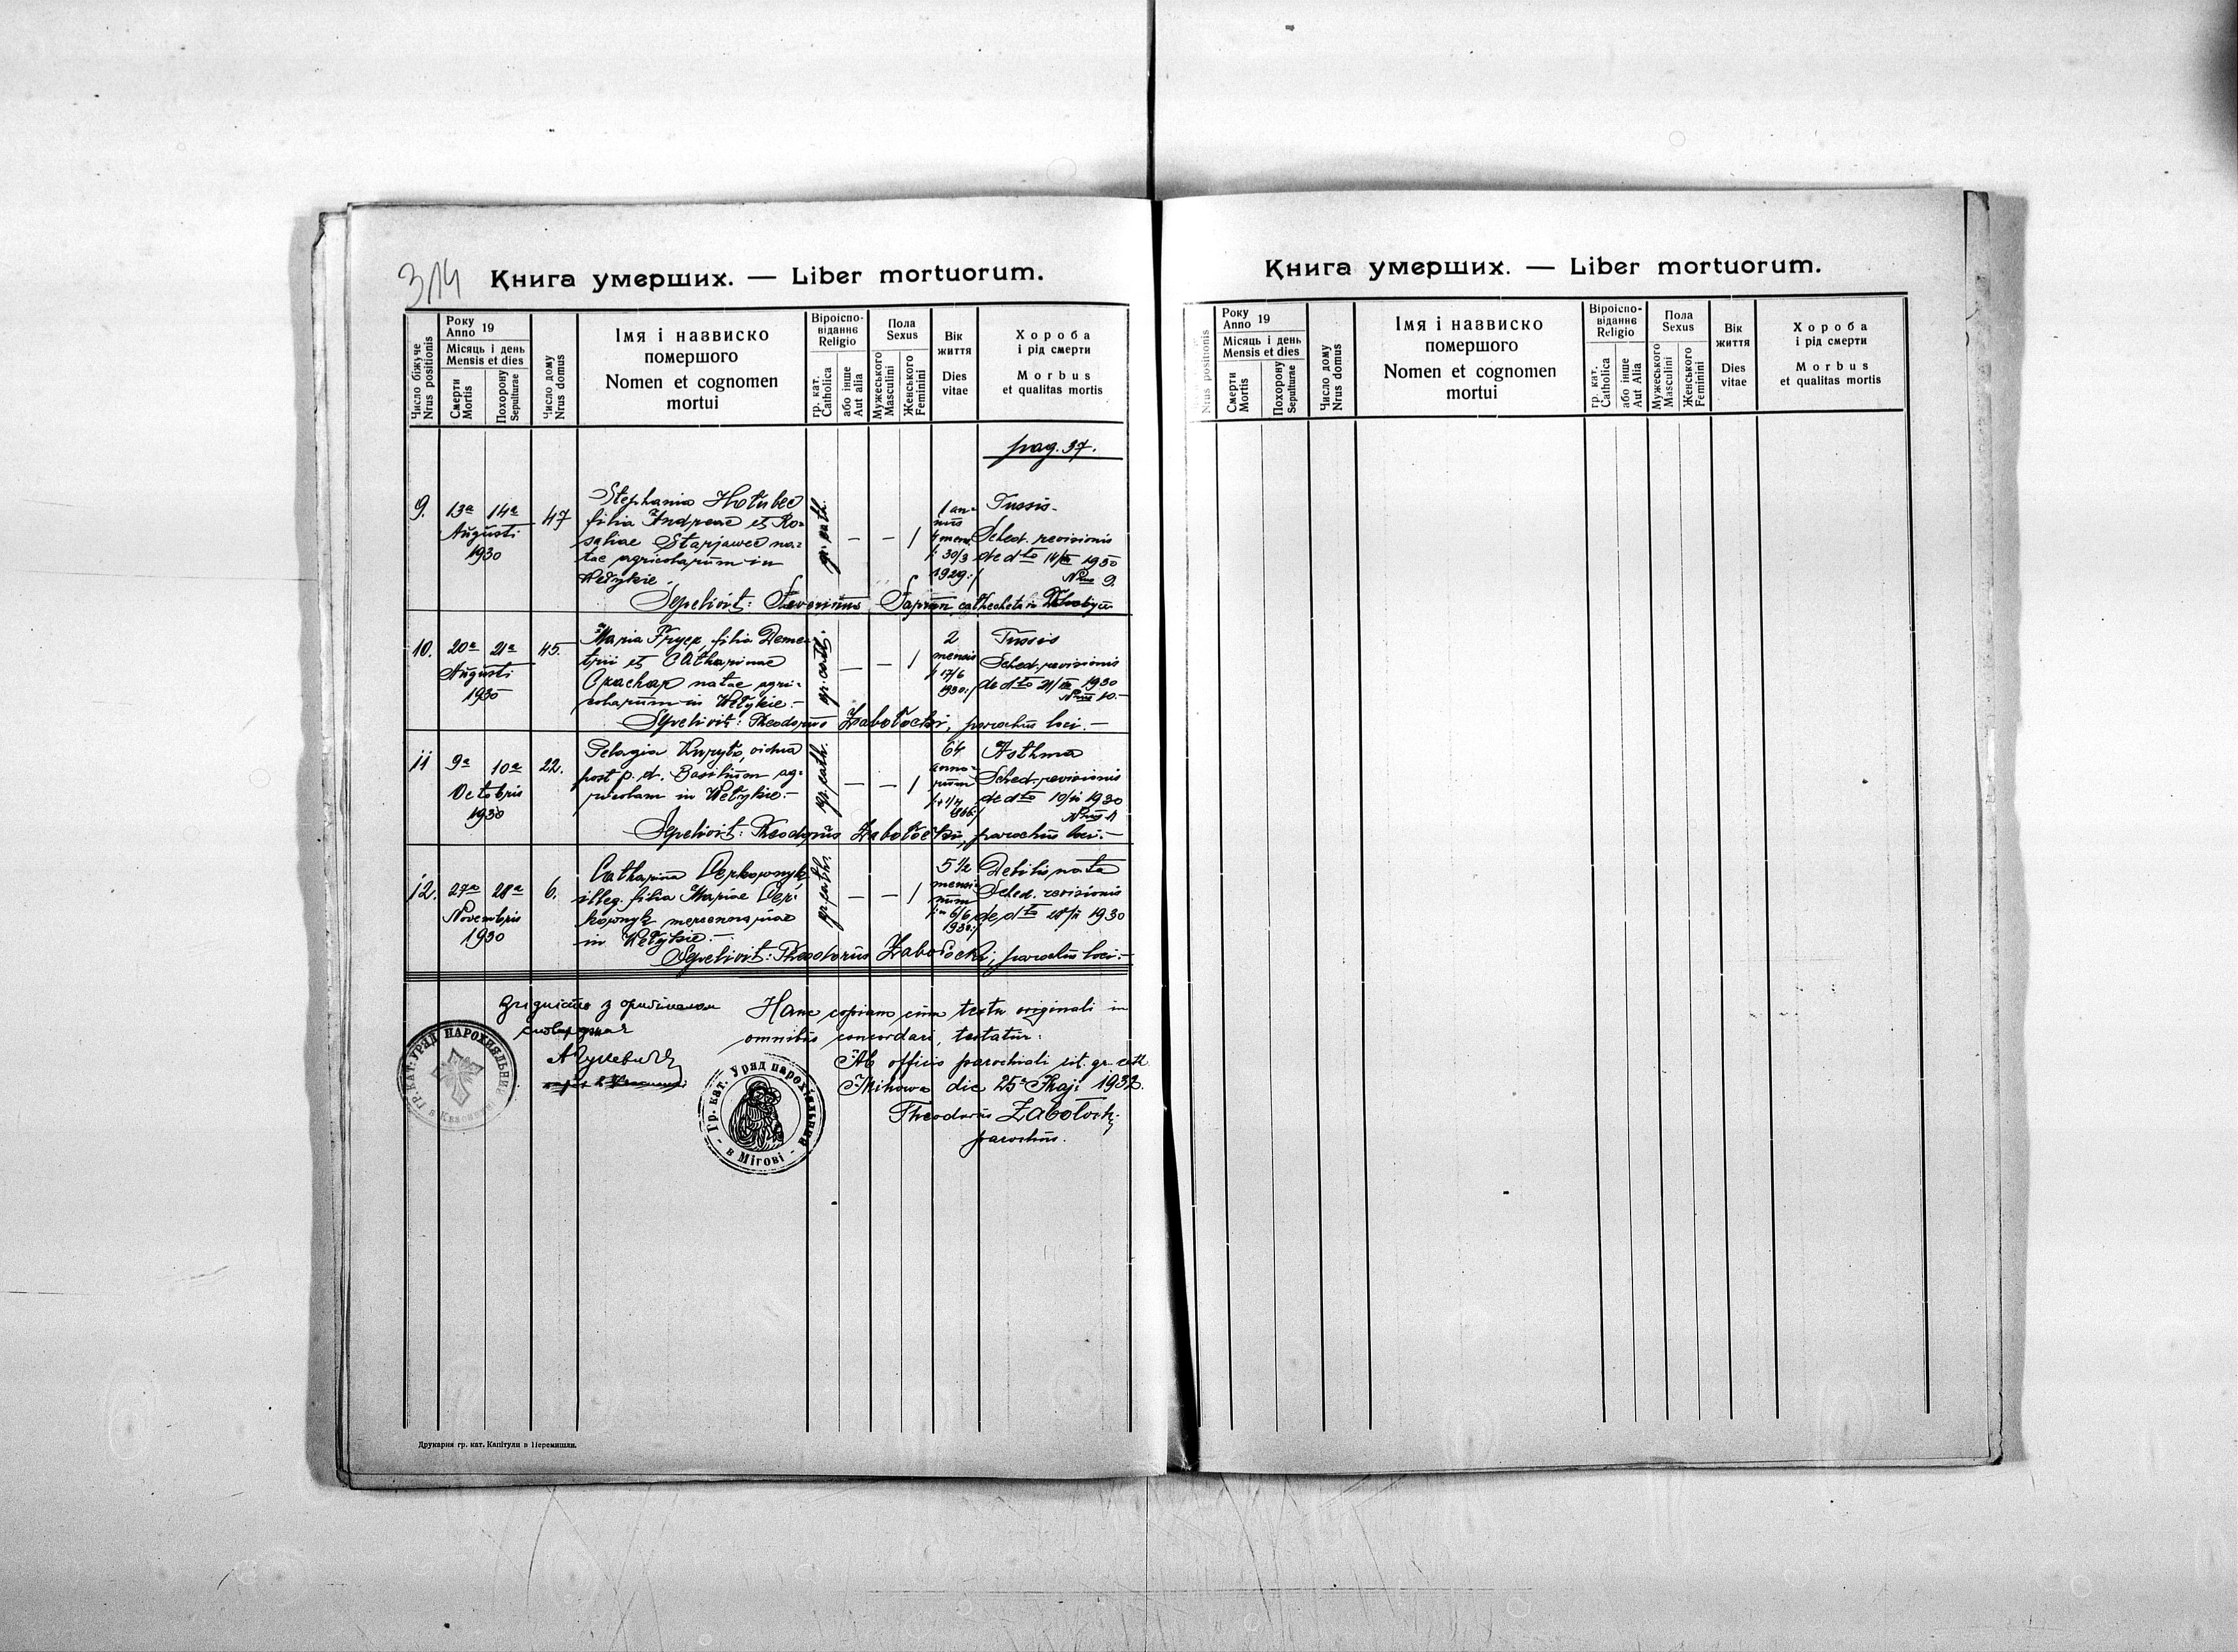 314
Книга умерших. — Liber mortuorum.
Число біжуче
Nrus positionis
Року
Anno 19
Місяць і день
Mensis et dies
Смерти
Mortis
Похорону
Sepulturae
Число дому
Nrus domus
Імя і назвиско
помершого
Nomen et cognomen
mortui
Віроіспо-
віданнє
Religio
гр. кат.
Catholica
або інше
Aut alia
Пола
Sexus
Мужеського
Masculini
Женського
Feminini
Вік
життя
Dies
vitae
Хороба
і рід смерти
Morbus
et qualitas mortis
pag. 37.
9.
13a 14a
Augusti
1930
47
Stephania Hołubec
filia Andreae et Ro=
saliae Starjawec na=
tae agricolarum in
Wełykie.
gr. cath.
— — /
1 an=
nus
4 mens.
/: 30/3
1929:/
Tussis.
Sched. revisionis
de dto 14/VIII 1930
Nrus 9.
Sepelivit: Severinus Saprun catecheta in
10.
20a 21a
Augusti
1930
45.
Maria Fryer, filia Deme=
trii et Catharinae
natae agri=
colarum in Wełykie.—
gr. cath.
— — /
2
mensis
/: 17/6
1930:/
Tussis
Sched. revisionis
de dto 21/VIII 1930
Nrus 10.—
Sepelivit: Theodorus Zabołocki, parochus loci.—
11
9a 10a
Octobris
1930
22.
Pelagia Kuryło, vidua
post p. d. Basilium ag=
ricolam in Wełykie.—
gr. cath.
— — /
64
anno=
rum
1866:/
Asthma
Sched. revisionis
de dto 10/X 1930
Nrus 11
Sepelivit: Theodorus Zabołocki, parochus loci.—
12.
27a 28a
Novembris
1930
6.
Catharina Derkownyk
illeg. filia Mariae Der=
kownyk mercenariae
in Wełykie.—
gr. cath.
— — /
5 1/2
mensi=
num
6/6
1930:/
Debilis nata
Sched. revisionis
de dto 28/XI 1930
Sepelivit: Theodorus Zabołocki, parochus loci.—
Згідність з оригіналом
стверджаю
Hanc copiam cum textu originali in
omnibus concordari, testatur:
Ab officio parochiali rit. gr. cath.
Mihowa die 25a Maji 1932.
Theodorus Zabołocki
parochus.
ГР. КАТ. УРЯД ПАРОХІЯЛЬНИЙ
Гр. кат. Уряд парохіяльний
в Мігові
Друкарня гр. кат. Капітули в Перемишли.
Книга умерших. — Liber mortuorum.
Nrus positionis
Року
Anno 19
Місяць і день
Mensis et dies
Смерти
Mortis
Похорону
Sepulturae
Число дому
Nrus domus
Імя і назвиско
помершого
Nomen et cognomen
mortui
Віроіспо-
віданнє
Religio
гр. кат.
Catholica
або інше
Aut Alia
Пола
Sexus
Мужеського
Masculini
Женського
Feminini
Вік
життя
Dies
vitae
Хороба
і рід смерти
Morbus
et qualitas mortis